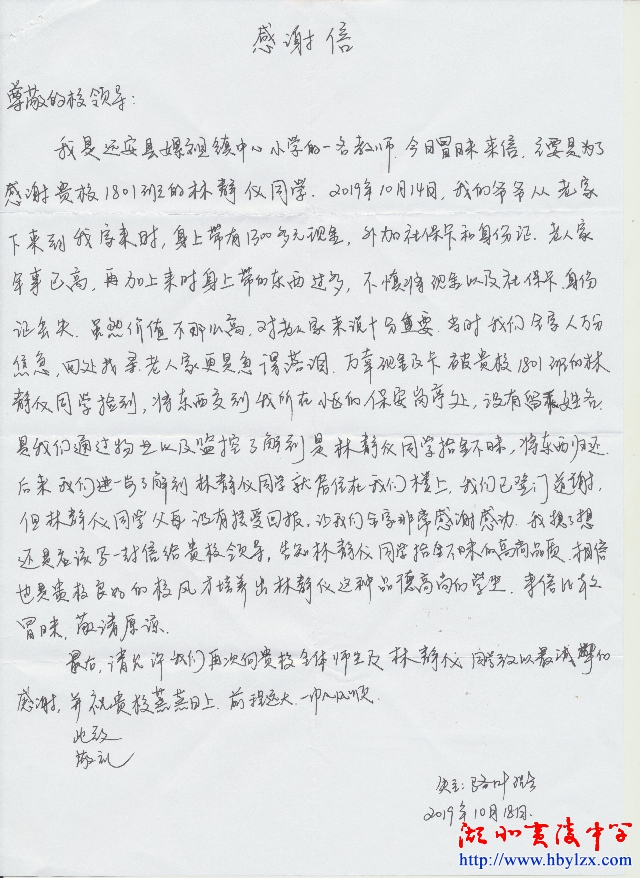 感谢信
尊敬的校领导:
我是远安县嫘祖镇中心小学的一名教师.今日冒昧来信,主要是为了
感谢贵校1801班的林静仪同学.2019年10月14日,我们的爷爷从老家
下来到我家来时,身上带有1500多元现金,外加社保卡和身份证.老人家
年事已高,再加上来时身上带的东西过多,不慎将现金以及社保卡、身份
证丢失.虽然价值不那么高,对老人家来说十分重要.当时我们全家人万分
焦急,四处找寻.老人家更是急得落泪.万幸现金及卡被贵校1801班的林
静仪同学捡到,将东西交到我所在小区的保安岗亭处,没有留下姓名.
是我们通过物业以及监控了解到是林静仪同学拾金不昧,将东西归还.
后来我们进一步了解到林静仪同学就居住在我们楼上,我们已登门道谢,
但林静仪同学父母没有接受回报,让我们全家非常感谢感动.我想了想
还是应该写一封信给贵校领导,告知林静仪同学拾金不昧的高尚品质.相信
也是贵校良好的校风才培养出林静仪这种品德高尚的学生.来信比较
冒昧,敬请原谅.
最后,请允许我们再次向贵校全体师生及林静仪同学致以最诚挚的
感谢,并祝贵校蒸蒸日上.前程远大.一帆风顺.
此致
敬礼
失主:
2019年10月18日.
湖北夷陵中学
http://www.hbylzx.com